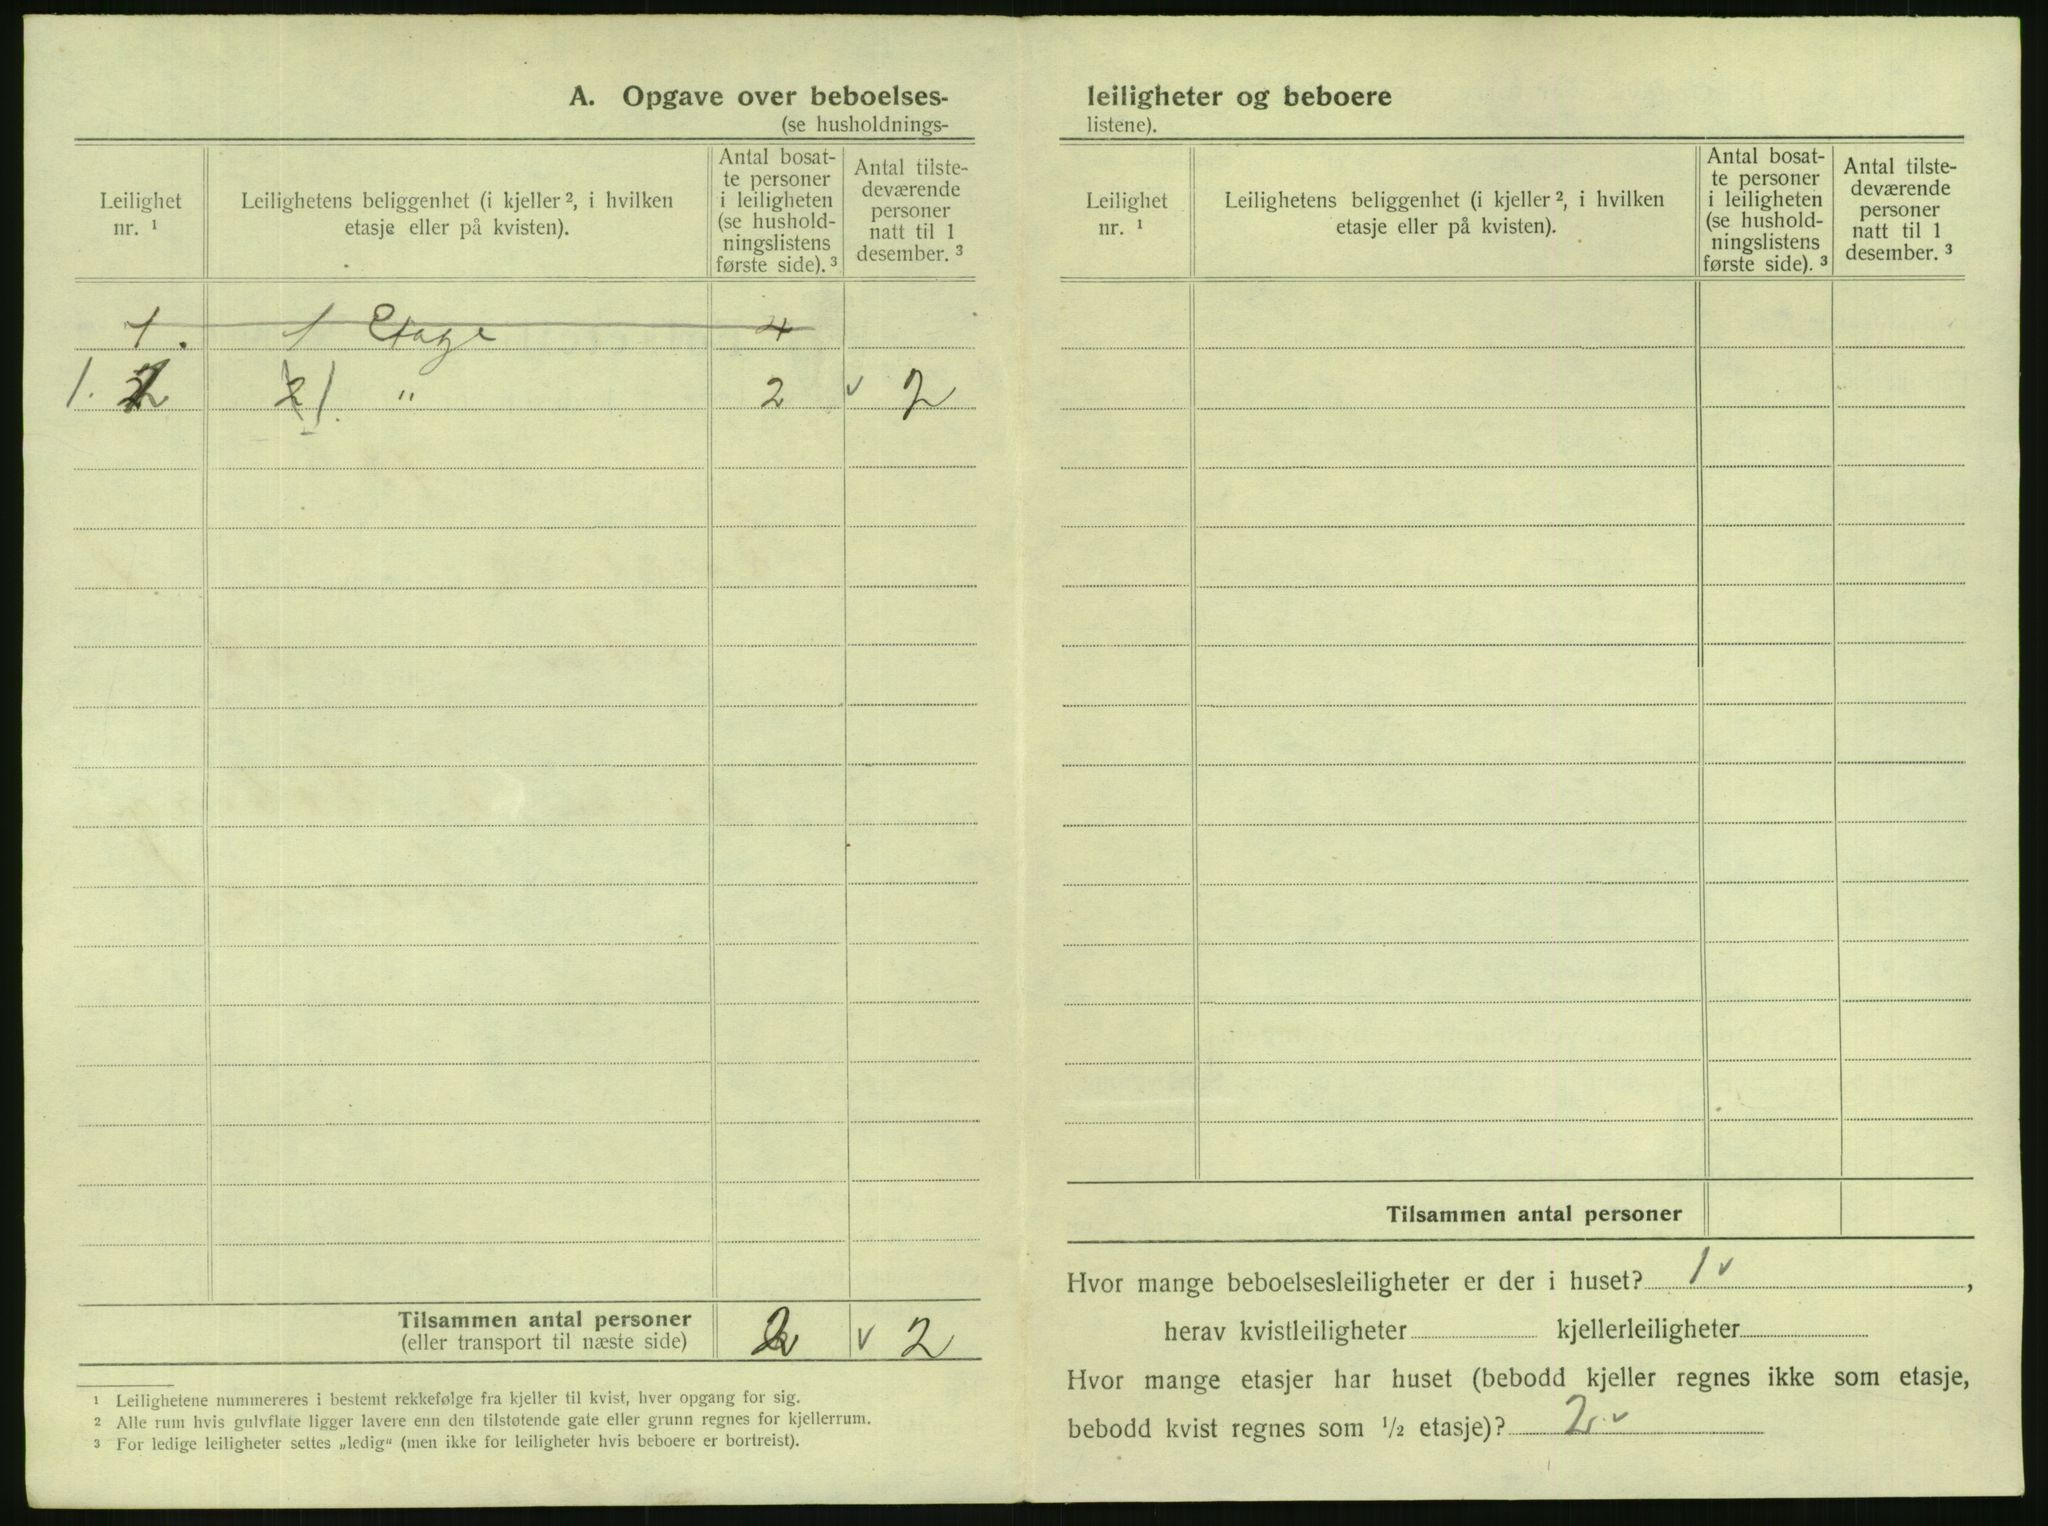 A. Opgave over beboelses-
(se husholdnings-
Leilighet nr. ¹
Leilighetens beliggenhet (i kjeller ², i hvilken etasje eller på kvisten).
Antal bosatte personer i leiligheten (se husholdningslistens første side). ³
Antal tilstedeværende personer natt til 1 desember. ³
1. 1 Etage 4
1. 2 2 1. " 2 v 2
Tilsammen antal personer 2 v 2
(eller transport til næste side)
¹ Leilighetene nummereres i bestemt rekkefølge fra kjeller til kvist, hver opgang for sig.
² Alle rum hvis gulvflate ligger lavere enn den tilstøtende gate eller grunn regnes for kjellerrum.
³ For ledige leiligheter settes „ledig“ (men ikke for leiligheter hvis beboere er bortreist).
leiligheter og beboere
listene).
Leilighet nr. ¹
Leilighetens beliggenhet (i kjeller ², i hvilken etasje eller på kvisten).
Antal bosatte personer i leiligheten (se husholdningslistens første side). ³
Antal tilstedeværende personer natt til 1 desember. ³
Tilsammen antal personer
Hvor mange beboelsesleiligheter er der i huset? 1 v ,
herav kvistleiligheter kjellerleiligheter
Hvor mange etasjer har huset (bebodd kjeller regnes ikke som etasje,
bebodd kvist regnes som ½ etasje)? 2. v